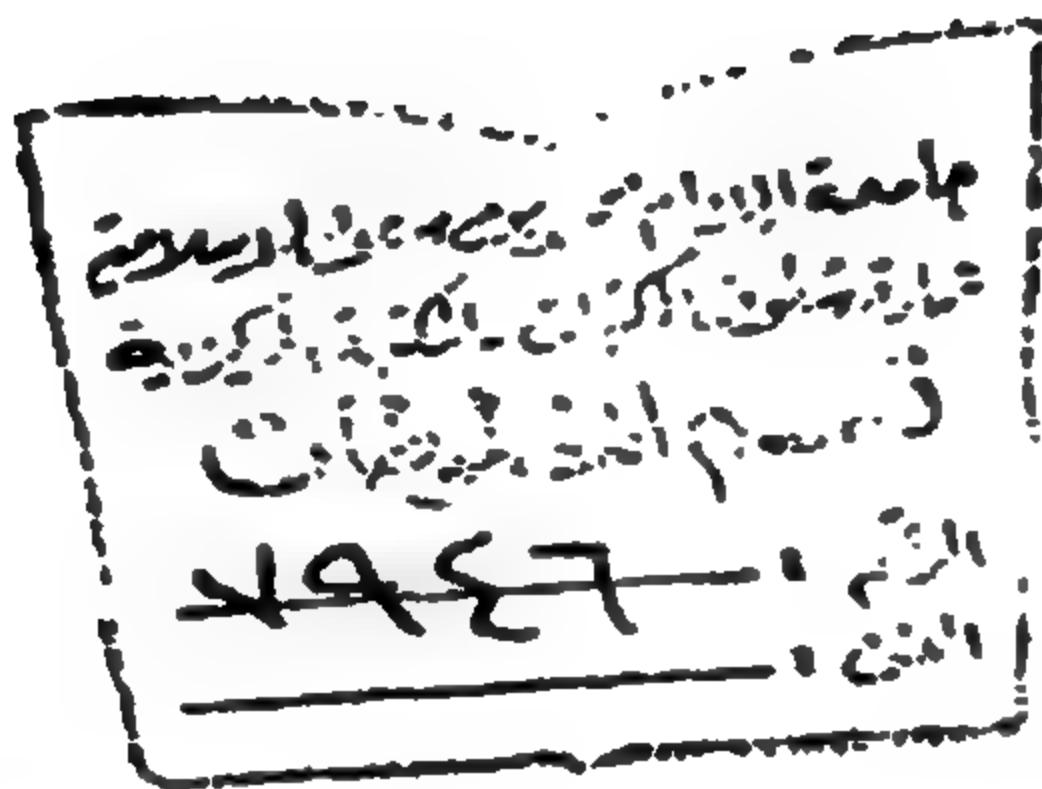 جامعة الإمام محمد بن سعود الإسلامية
عمادة شؤون المكتبات - المكتبة المركزية
قسم المخطوطات
الرقم : ٧٩٤٦